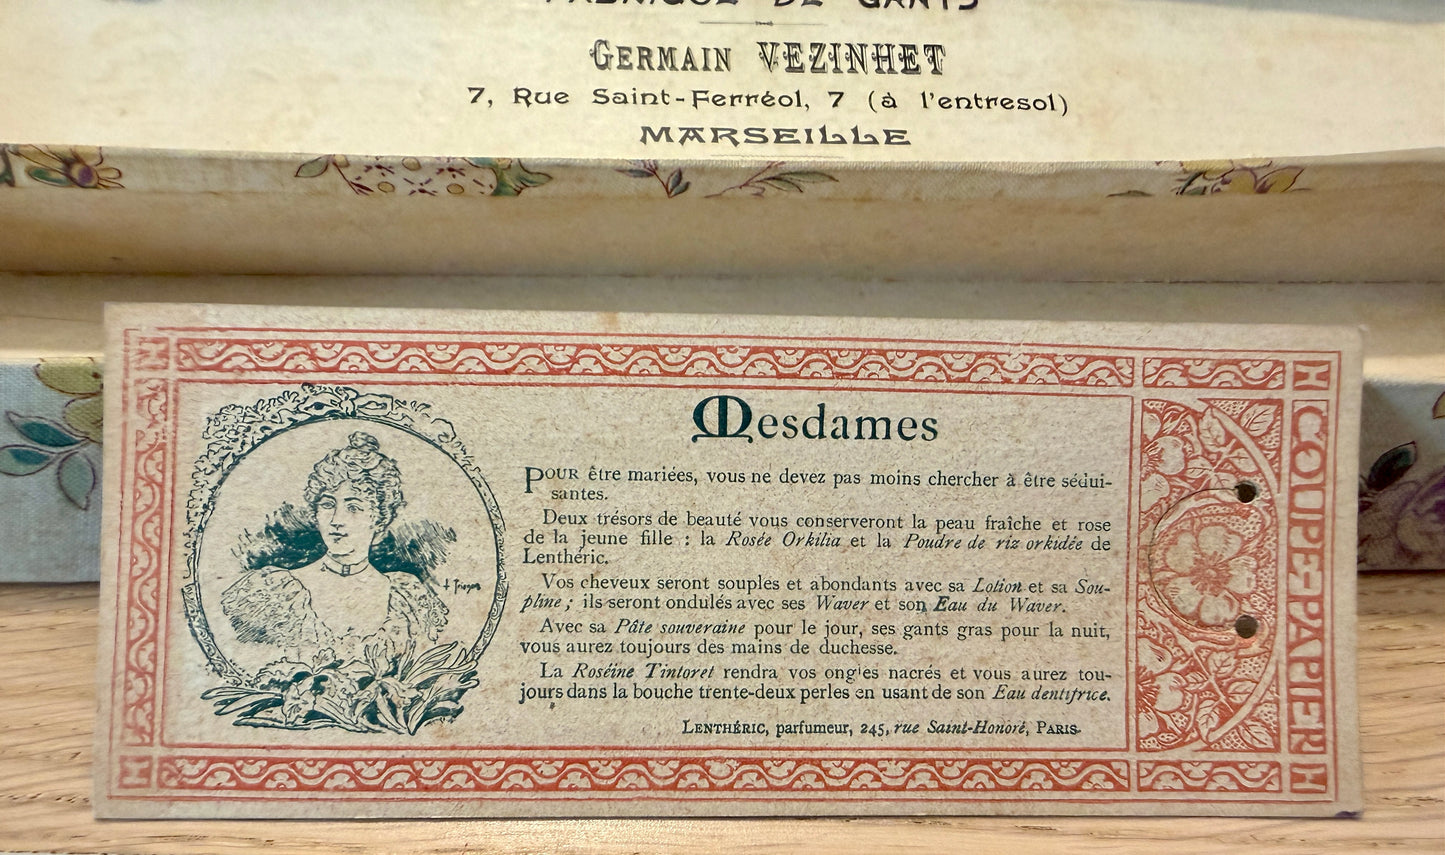 FABRIQUE DE GANTS
GERMAIN VEZINHET
7, Rue Saint-Ferréol, 7 (à l'entresol)
MARSEILLE
Mesdames
POUR être mariées, vous ne devez pas moins chercher à être sédui-
santes.
Deux trésors de beauté vous conserveront la peau fraîche et rose
de la jeune fille : la Rosée Orkilia et la Poudre de riz orkidée de
Lenthéric.
Vos cheveux seront souples et abondants avec sa Lotion et sa Sou-
pline ; ils seront ondulés avec ses Waver et son Eau du Waver.
Avec sa Pâte souveraine pour le jour, ses gants gras pour la nuit,
vous aurez toujours des mains de duchesse.
La Roséine Tintoret rendra vos ongles nacrés et vous aurez tou-
jours dans la bouche trente-deux perles en usant de son Eau dentifrice.
LENTHÉRIC, parfumeur, 245, rue Saint-Honoré, PARIS.
COUPE-PAPIER